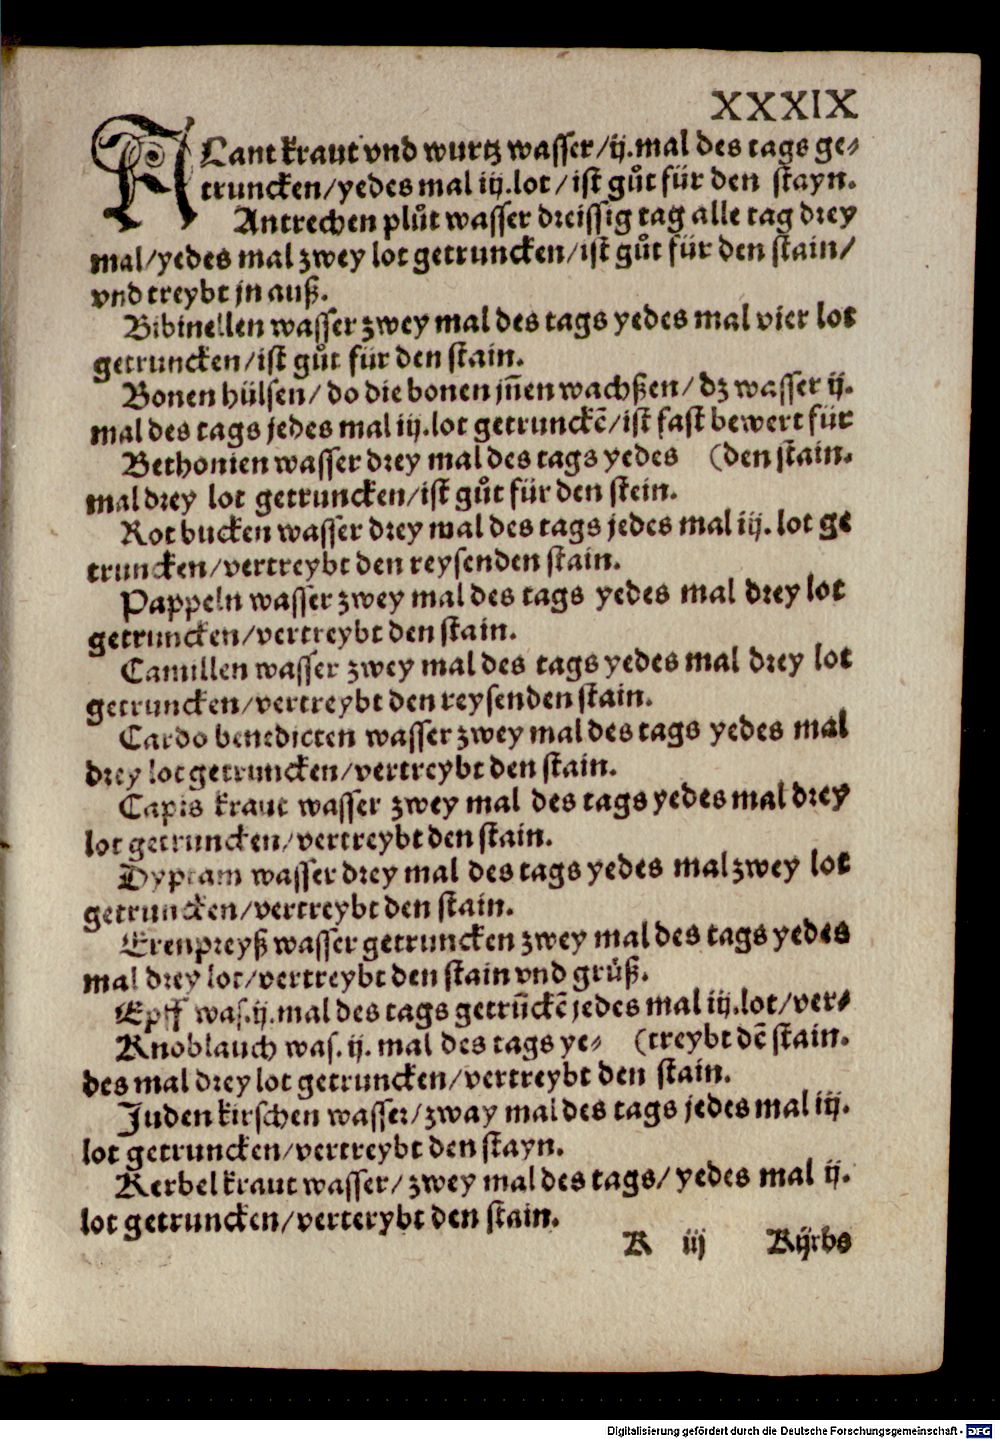 XXXIX
ALant kraut vnd wurtz wasser/ij.mal des tags ge-
truncken/yedes mal iij.lot/ist gůt für den stayn.
Antrechen plůt wasser dreissig tag alle tag drey
mal/yedes mal zwey lot getruncken/ist gůt für den stain/
vnd treybt jn auß.
Bibinellen wasser zwey mal des tags yedes mal vier lot
getruncken/ist gůt für den stain.
Bonen hülsen/do die bonen jñen wachßen/dz wasser ij.
mal des tags jedes mal iij.lot getrunckẽ/ist fast bewert für
Bethonien wasser drey mal des tags yedes (den stain.
mal drey lot getruncken/ist gůt für den stein.
Rot bucken wasser drey mal des tags jedes mal iij. lot ge
truncken/vertreybt den reysenden stain.
Pappeln wasser zwey mal des tags yedes mal drey lot
getruncken/vertreybt den stain.
Camillen wasser zwey mal des tags yedes mal drey lot
getruncken/vertreybt den reysenden stain.
Cardo benedicten wasser zwey mal des tags yedes mal
drey lot getruncken/vertreybt den stain.
Capis kraut wasser zwey mal des tags yedes mal drey
lot getruncken/vertreybt den stain.
Dyptam wasser drey mal des tags yedes mal zwey lot
getruncken/vertreybt den stain.
Erenpreyß wasser getruncken zwey mal des tags yedes
mal drey lot/vertreybt den stain vnd grüß.
Epff was.ij.mal des tags getrũckẽ jedes mal iij.lot/ver-
Knoblauch was. ij. mal des tags ye- (treybt dẽ stain.
des mal drey lot getruncken/vertreybt den stain.
Juden kirschen wasser/zway mal des tags jedes mal iij.
lot getruncken/vertreybt den stayn.
Kerbel kraut wasser/zwey mal des tags/yedes mal ij.
lot getruncken/verterybt den stain.
K iij Kürbs
Digitalisierung gefördert durch die Deutsche Forschungsgemeinschaft - DFG